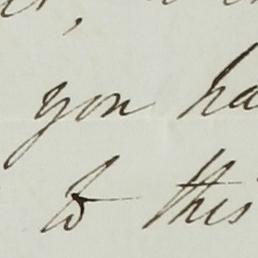 you ha
to this